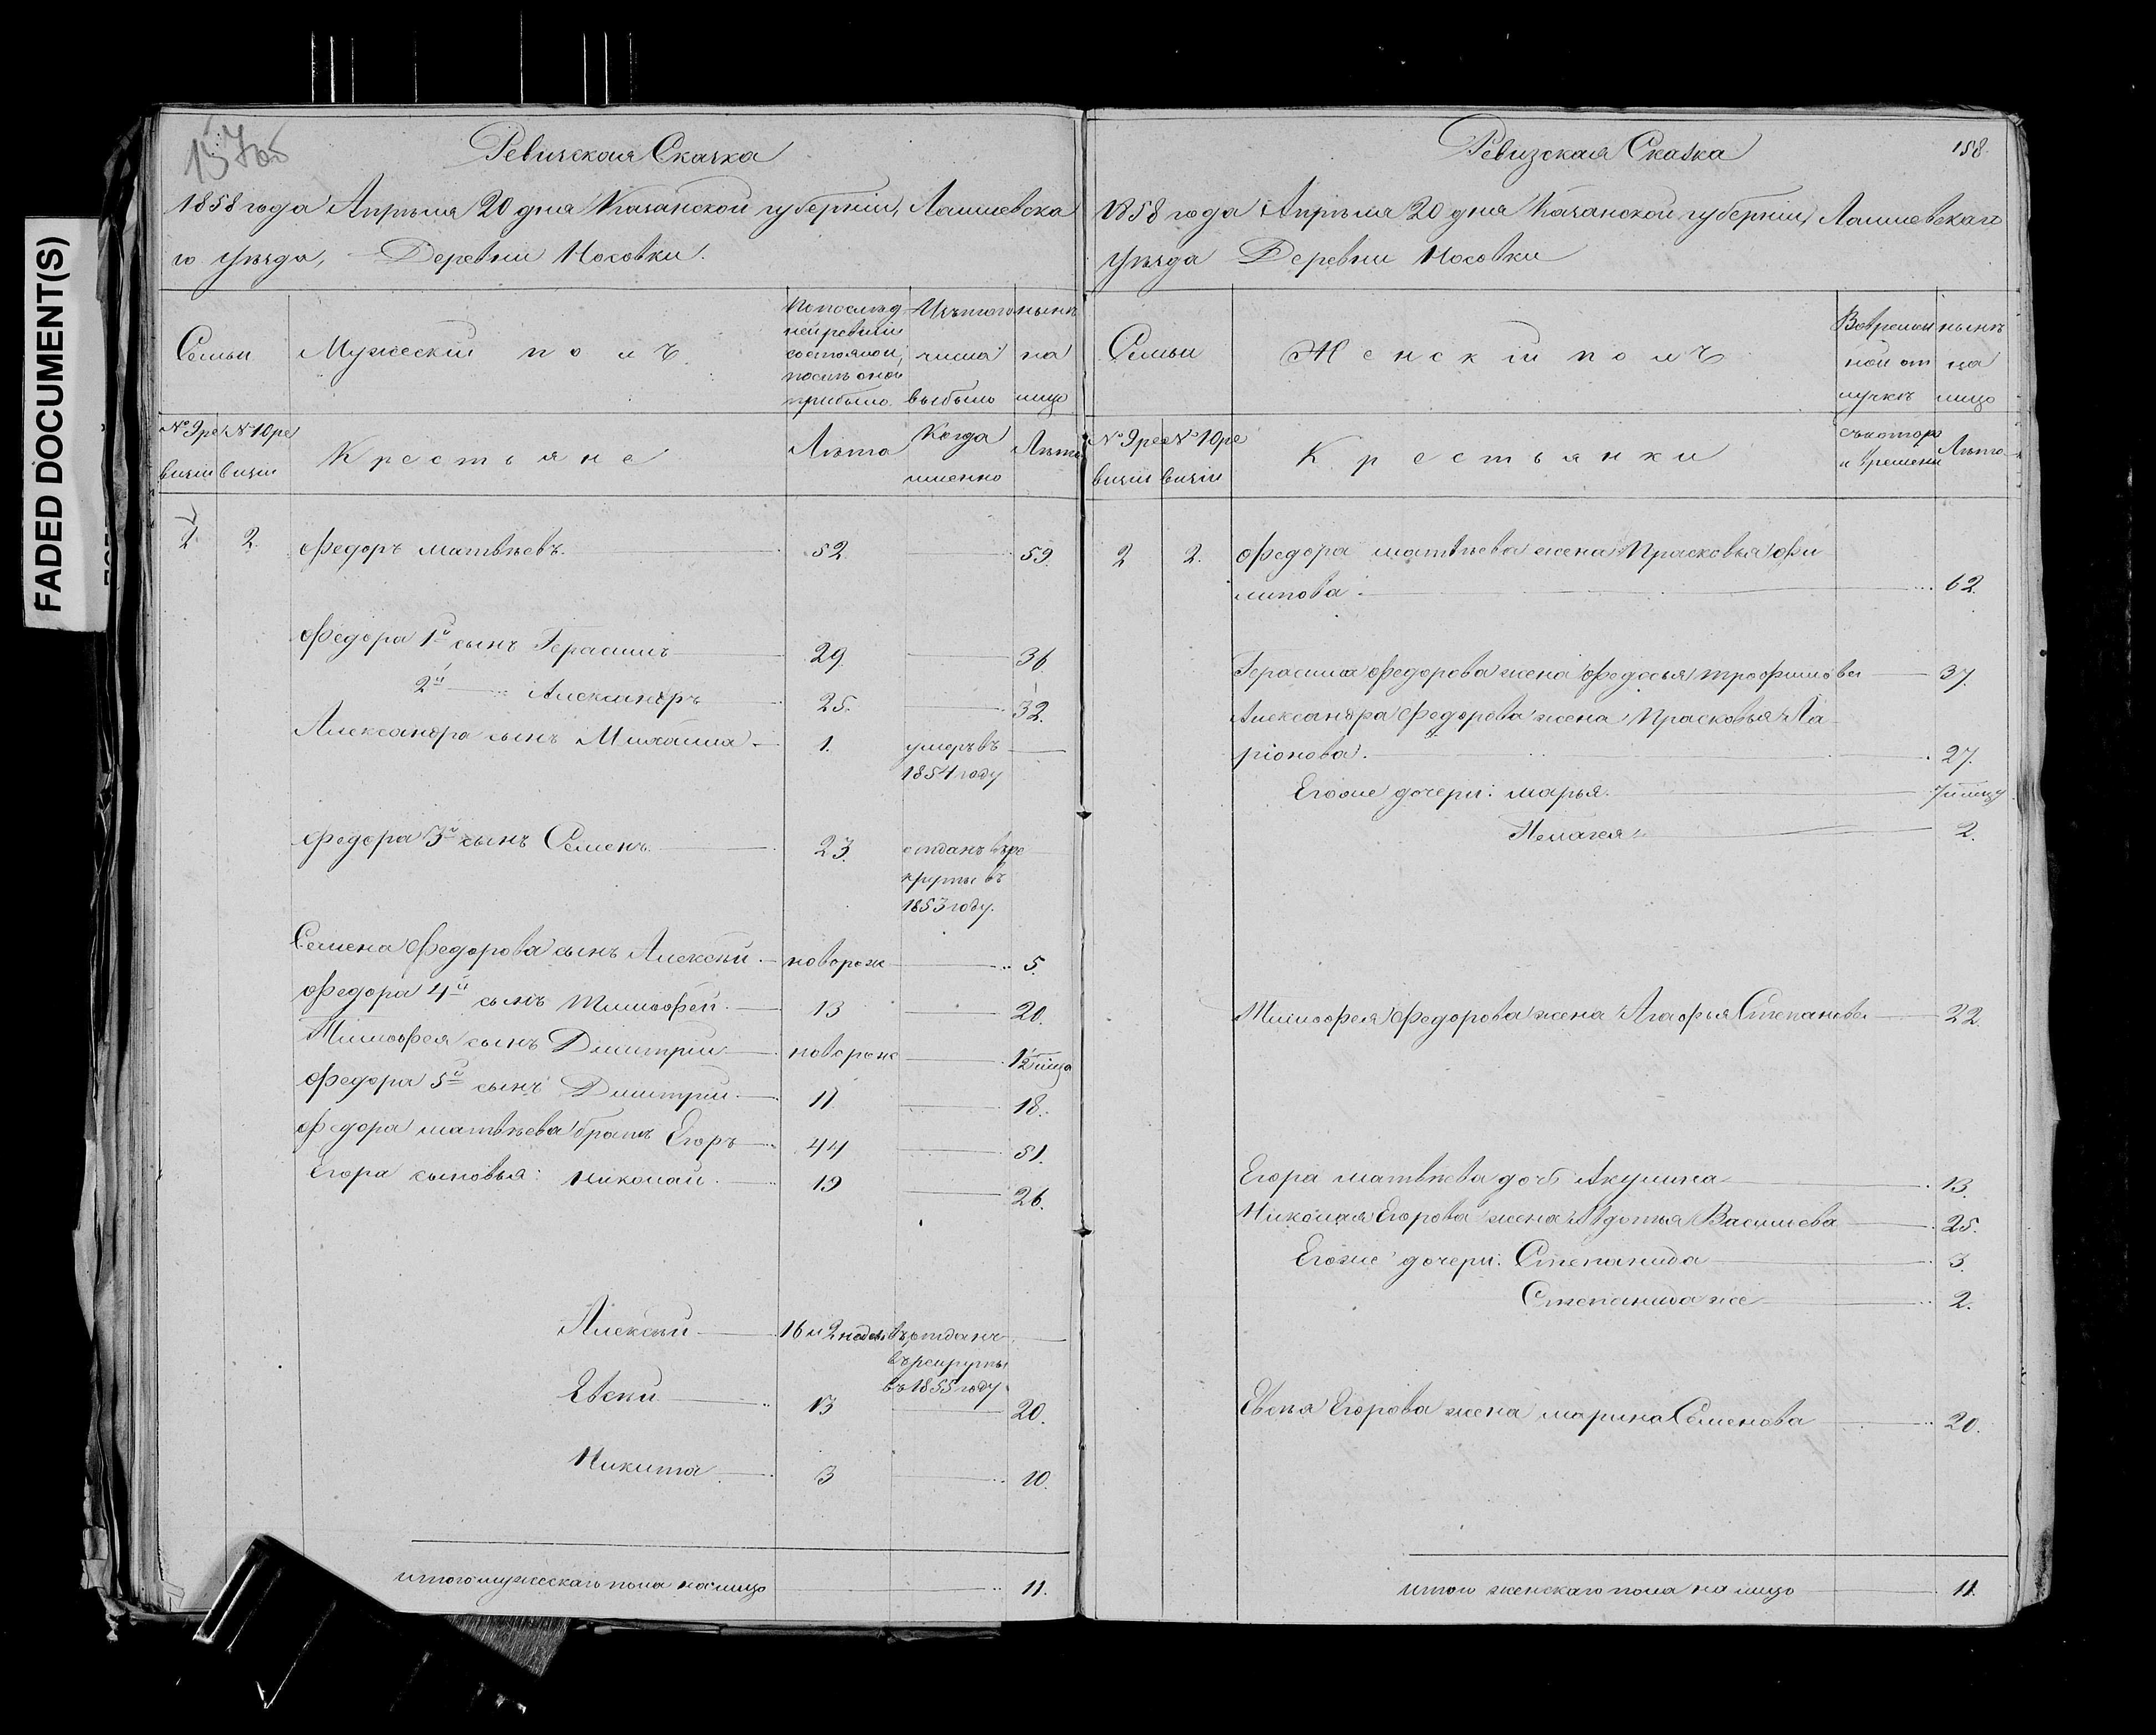 FADED DOCUMENT(S)
Ревизская Сказка
1858 года Апрѣля 20 дня Казанской губерніи, Лаишевска
го уѣзда, Деревни Носовки.
Семьи
Мужескій полъ
По послѣд
ней ревизіи
состояло и
послѣ оной
прибыло.
Изъ того
числа
выбыло
нынѣ
на
лицо
№ 9 ре
визіи
№ 10 ре
визіи
Крестьяне
Лѣта
Когда
именно
Лѣта
2. 2. Федоръ Матвѣевъ. 52. 59.
Федора 1й сынъ Герасимъ 29. 36.
2й Александръ 25. 32.
Александра сынъ Михаила 1. умеръ въ
1854 году
Федора 3й сынъ Семенъ 23. отданъ в ре
круты въ
1853 году.
Семена Федорова сынъ Алексѣй новорож 5.
Федора 4й сынъ Тимофей 13 20.
Тимофея сынъ Дмитрій новорож
Федора 5й сынъ Дмитрій 11 18.
Федора Матвѣева братъ Егоръ 44 51.
Егора сыновья: Николай 19 26.
Алексѣй 16 и 2 недѣл отданъ
въ рекруты
въ 1855 году
Евсій 13 20.
Никита 3 10.
итого мужескаго пола налицо 11.
Ревизская Сказка
158.
1858 года Апрѣля 20 дня Казанской губерніи, Лаишевскаго
уѣзда Деревни Носовки
Семьи
Женскій полъ
Во времен
ной от
лучкѣ
нынѣ
на
лицо
№ 9 ре
визіи
№ 10 ре
визіи
Крестьянки
съ котора
го времени
Лѣта
2 2. Федора Матвѣева жена Прасковья Фи
липова 62.
Герасима Федорова жена Федосья Трофимова 37.
Александра Федорова жена Прасковья Ла
ріонова. 27.
Егоже дочери: Марья
Пелагея 2.
Тимофея Федорова жена Агафья Степанова 22.
Егора Матвѣева дочь Акулина 13.
Николая Егорова жена Авдотья Васильева 25.
Егоже дочери: Степанида 3.
Степанида же 2.
Евсѣя Егорова жена Марина Семенова 20.
итого женскаго пола на лицо 11.